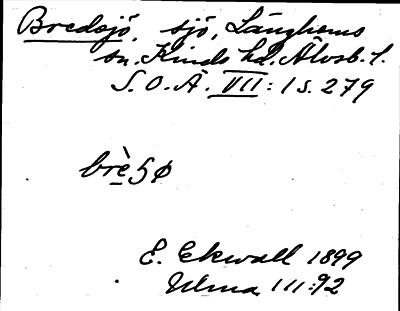 Bredsjö, sjö, Länghems
sn. Kinds hd. Älvsb. l.
S. O. Ä. VII: 1 s. 279
brè̱ʒø
E. Ekwall 1899
Ulma 111:92